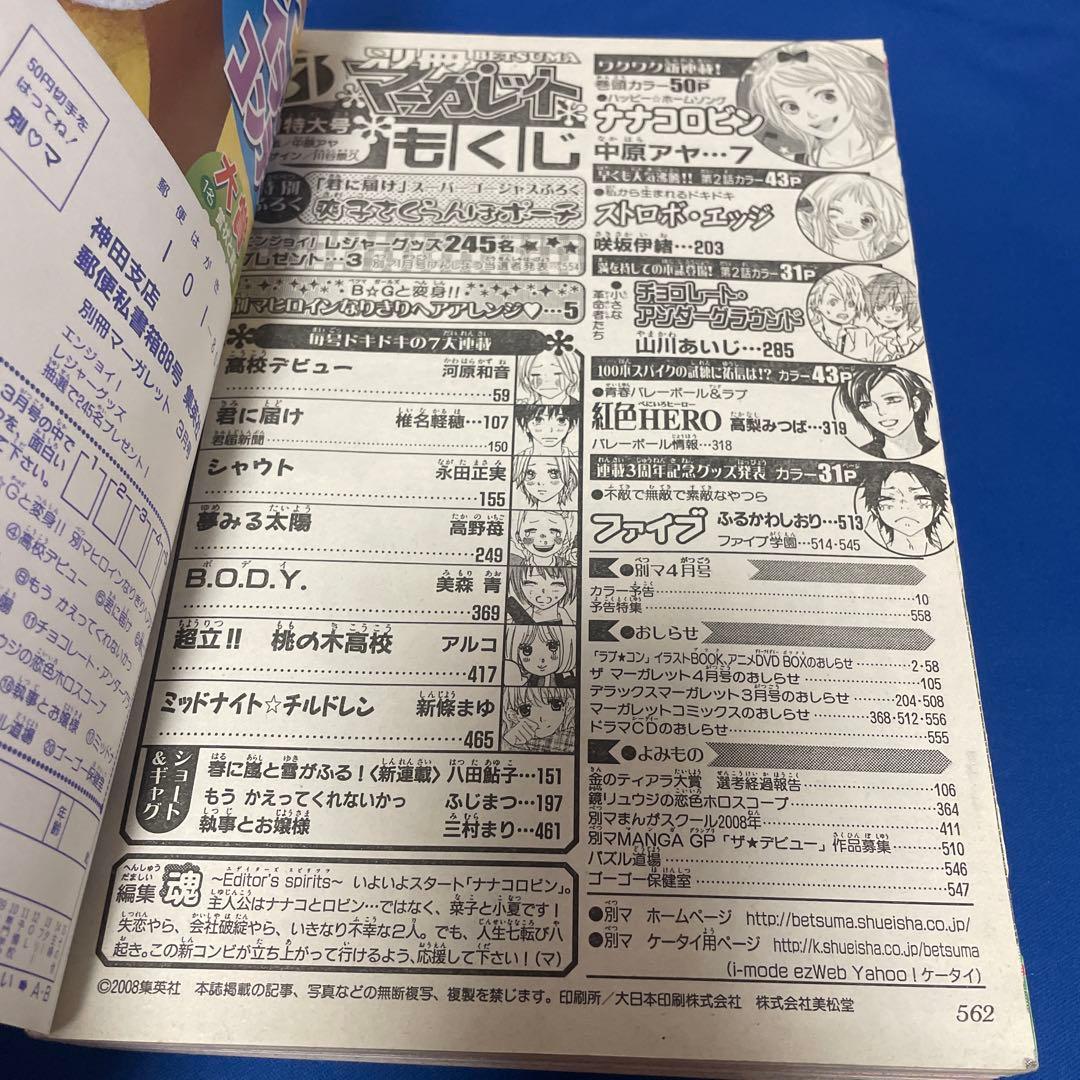 50円切手を
はってね!
別♡マ
郵便はがき
101-8
神田支店
郵便私書箱88号
別冊マーガレット 3月号
エンジョイ!
レジャーグッズ
抽選で245名プレゼント!
3月号の中で
面白い
④高校デビュー
⑥君に届け
⑧もう かえってくれないかっ
⑪チョコレート・アンダーグラ
ウジの恋色ホロスコープ
⑯執事とお嬢様
ル道場
⑳ゴーゴー保健室
年齢
A・B
別冊 BETSUMA
マーガレット
特大号
もくじ
「君に届け」スーパーゴージャスふろく
爽子さくらんぼポーチ
エンジョイ! レジャーグッズ245名
プレゼント…3 別マ1月号けんしょう当選者発表…554
B☆Gと変身!!
別マヒロインなりきりヘアアレンジ♡…5
毎号ドキドキの7大連載
高校デビュー 河原和音
59
君に届け 椎名軽穂…107
君届新聞 150
シャウト 永田正実
155
夢みる太陽 高野苺
249
B.O.D.Y. 美森 青
369
超立!! 桃の木高校 アルコ
417
ミッドナイト☆チルドレン 新條まゆ
465
ショート&ギャグ
春に嵐と雪がふる!〈新連載〉八田鮎子…151
もう かえってくれないかっ ふじまつ…197
執事とお嬢様 三村まり…461
編集魂 ~Editor's spirits~ いよいよスタート「ナナコロビン」。
主人公はナナコとロビン…ではなく、菜子と小夏です!
失恋やら、会社破綻やら、いきなり不幸な2人。でも、人生七転び八
起き。この新コンビが立ち上がって行けるよう、応援して下さい!(マ)
ワクワク新連載!
巻頭カラー50P
●ハッピー☆ホームソング
ナナコロビン
中原アヤ…7
早くも人気沸騰!! 第2話カラー43P
●私から生まれるドキドキ
ストロボ・エッジ
咲坂伊緒…203
満を持しての本誌登場! 第2話カラー31P
●小さな革命者たち
チョコレート・
アンダーグラウンド
山川あいじ…285
100本スパイクの試練に祐信は!? カラー43P
●青春バレーボール&ラブ
紅色HERO 高梨みつば…319
バレーボール情報…318
連載3周年記念グッズ発表 カラー31P
●不敵で無敵で素敵なやつら
ファイブ ふるかわしおり…513
ファイブ学園…514・545
●別マ4月号
カラー予告 10
予告特集 558
●おしらせ
「ラブ★コン」イラストBOOK、アニメDVD BOXのおしらせ 2・58
ザ マーガレット4月号のおしらせ 105
デラックスマーガレット3月号のおしらせ 204・508
マーガレットコミックスのおしらせ 368・512・556
ドラマCDのおしらせ 555
●よみもの
金のティアラ大賞 選考経過報告 106
鏡リュウジの恋色ホロスコープ 364
別マまんがスクール2008年 411
別マMANGA GP「ザ★デビュー」作品募集 510
パズル道場 546
ゴーゴー保健室 547
●別マ ホームページ http://betsuma.shueisha.co.jp/
●別マ ケータイ用ページ http://k.shueisha.co.jp/betsuma
(i-mode ezWeb Yahoo!ケータイ)
©2008集英社 本誌掲載の記事、写真などの無断複写、複製を禁じます。印刷所/大日本印刷株式会社 株式会社美松堂
562